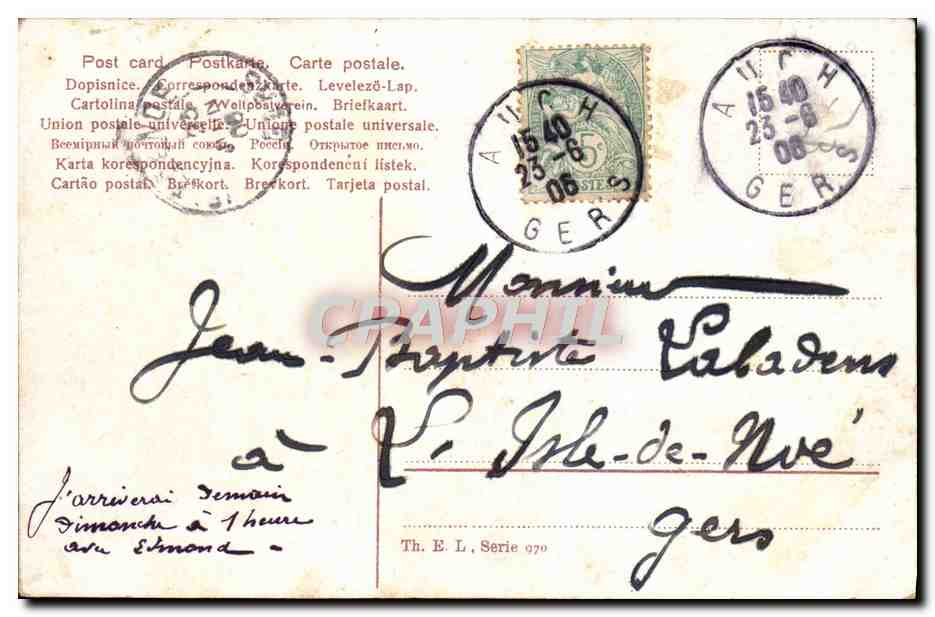 Post card. Postkarte. Carte postale.
Dopisnice. Correspondenzkarte. Levelező-Lap.
Cartolina postale. Weltpostverein. Briefkaart.
Union postale universelle. Unione postale universale.
Всемірный почтовый союзъ. Россія. Открытое письмо.
Karta korespondencyjna. Korespondenční lístek.
Cartão postal. Brefkort. Brevkort. Tarjeta postal.
AUCH
15 40
23 - 6
06
GERS
5c
POSTES
AUCH
15 40
23 - 6
06
GERS
CPAPHIL
Monsieur
Jean-Baptiste Labadens
à L'Isle-de-Noé
Gers
J'arriverai demain
dimanche à 1 heure
avec Edmond -
Th. E. L., Serie 970